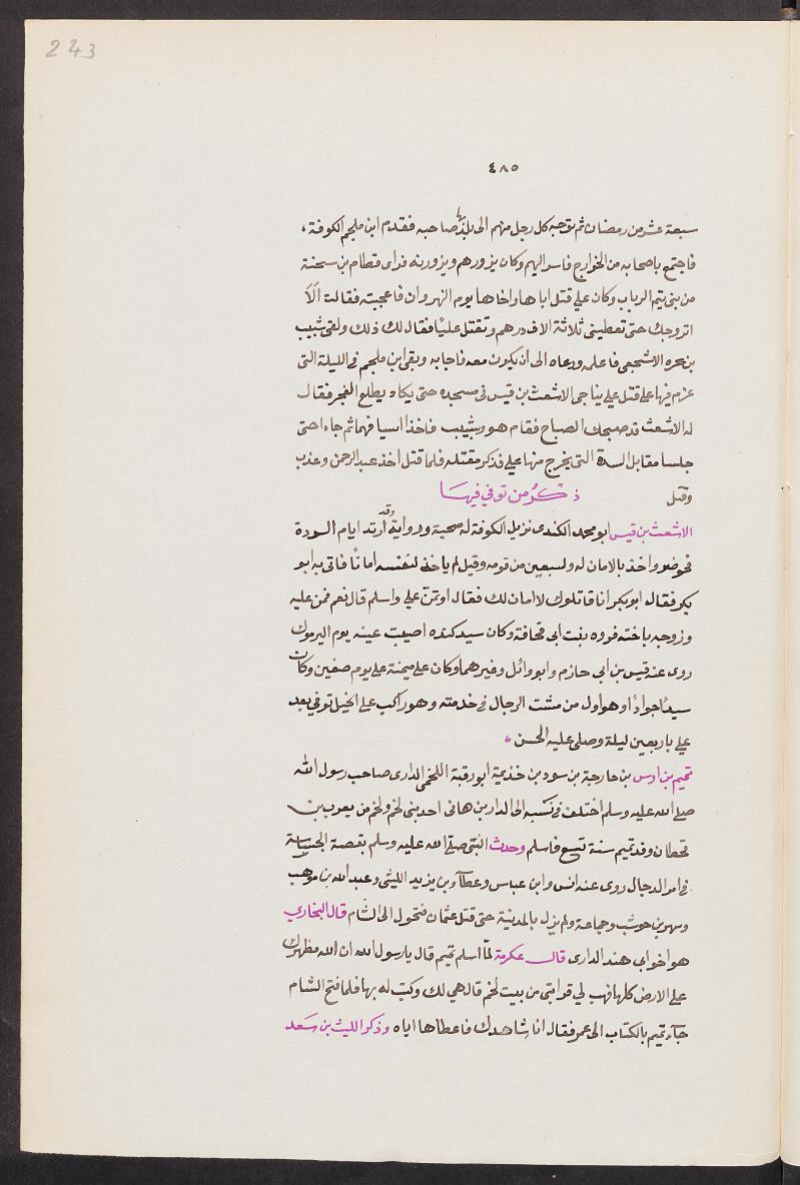 243
٤٨٥
سبعة عشر من رمضان ثم توجه كل رجل منهم الى بلد بها صاحبه فقدم ابن ملجم الكوفة ،
فاجتمع باصحابه من الخوارج فاسر اليهم وكان يزورهم ويزورنه فراى قطام بن سحنة
من بنى تيم الرباب وكان علي قتل اباها واخاها يوم النهروان فاعجبته فقالت الّا
اتزوجك حتى تعطينى ثلاثة الاف درهم وتقتل عليًا فقال لك ذلك ولقى شبيب
بن بجره الاشجعى فاعلمه ودعاه الى ان يكون معه فاجابه وبقى ابن ملجم فى الليلة التى
عزم فيها على قتل علي يناجى الاشعث بن قيس فى مسجده حتى يكاد يطلع الفجر فقال
له الاشعث قد صبحك الصباح فقام هو وشبيب فاخذا اسيافهما ثم جاءا حتى
جلسا مقابل السدة التى يخرج منها علي فذكر مقتله فلما قتل اخذ عبد الرحمن وعذب
وقتل ذكر من توفي فيها
الاشعث بن قيس ابو محمد الكندى نزيل الكوفة له صحبة ورواية وقد ارتد ايام الردة
فحوصر واخذ بالامان له ولسبعين من قومه وقيل لم ياخذ لنفسه امانًا فاتى به ابو
بكر فقال ابو بكر انا قاتلوك لا امان لك فقال اوتمنّ علي واسلم قال نعم فمن عليه
وزوجه باخته فروه بنت ابى قحافة وكان سيد كنده اصيبت عينه يوم اليرموك
روى عنه قيس بن ابى حازم وابو وائل وغيرهما وكان على ميمنة علي يوم صفين وكان
سيدًا جوادًا وهو اول من مشت الرجال فى خدمته وهو راكب على الخيل توفي بعد
علي باربعين ليلة وصلى عليه الحسن ،
تميم بن اوس بن خارجة بن سود بن خذيمة ابو رقبة اللخمى الدارى صاحب رسول الله
صلى الله عليه وسلم اختلف فى نسبه الى الدار بن هانى احد بنى لخم ولخم من يعرب بن
قحطان وفد تميم سنة تسع فاسلم وحدث النبى صلى الله عليه وسلم بقصة الجساسة
فى امر الدجال روى عنه انس وابن عباس وعطآء بن يزيد الليثى وعبد الله بن موهب
وسهر بن حوشب وجماعة ولم يزل بالمدينة حتى قتل عثمان فتحول الى الشام قال البخاري
هو اخو ابى هند الدارى قال عكرمة لمّا اسلم تميم قال يا رسول الله ان الله مظهرك
على الارض كلها فهب لي قرابتى من بيت لخم قال هي لك وكتب له بها فلما فتح الشام
جآء تميم بالكتاب الى عمر فقال انا شاهدك فاعطاها اياه وذكر الليث بن سعد